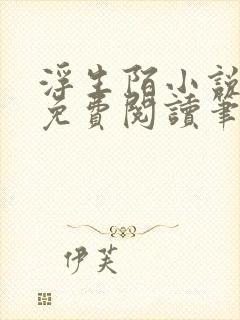 浮生陌小說
免費閱讀筆
伊芙